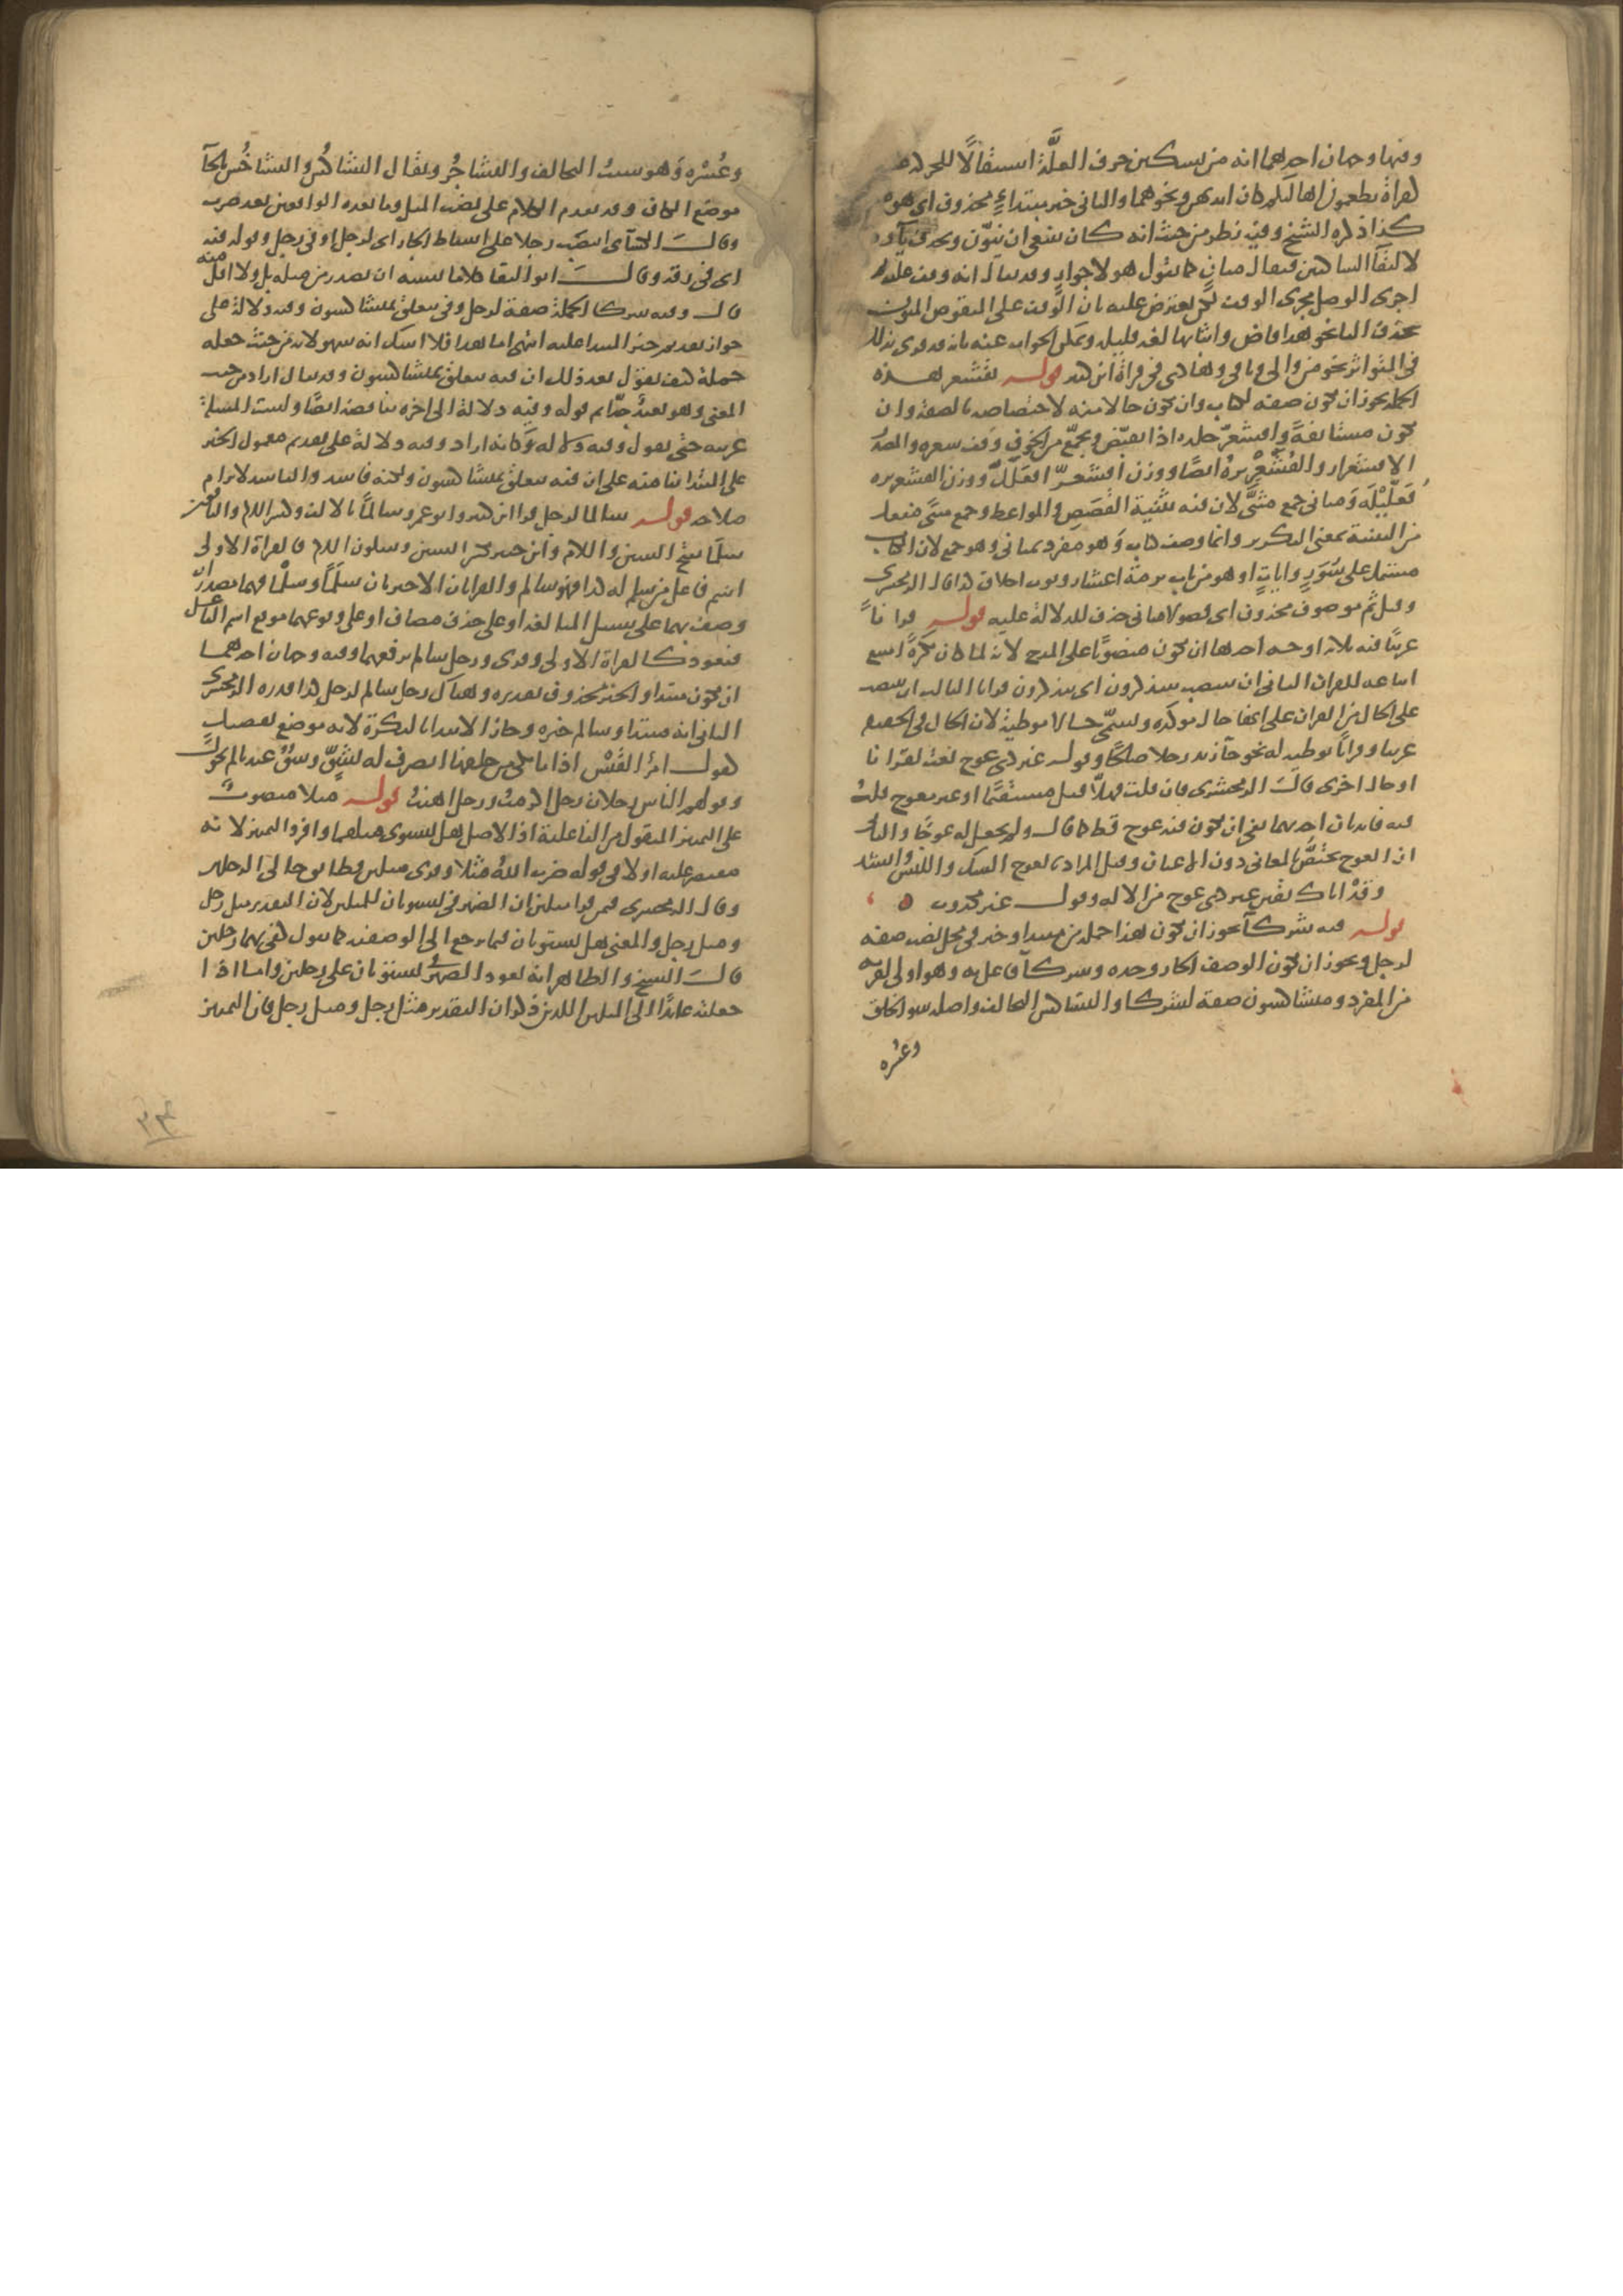 وفيها وجهان احدهما انه من تسكين حرف العلة استثقالا للحركة
كقراءة تطعمون اهاليكم كان ايديهن ونحوهما والثاني خبر مبتداء محذوف اي هو
كذا ذكره الشيخ وفيه نظر من حيث انه كان ينبغي ان ينون ويحذف ياؤه
لالتقاء الساكنين فيقال مثان كما تقول هولاء جوار وقد يقال انه وقف عليه
اجرى الوصل مجرى الوقف لكن يعترض عليه بان الوقف على المنقوص المنون
بحذف اليا نحو هذا قاض واثباتها لغة قليلة ويمكن الجواب عنه بانه قد قرى بذلك
في المتواتر نحو من والي وباقي وهادي في قراءة ابن كثير قوله تقشعر هذه
الجملة يجوز ان تكون صفة لكتاب وان تكون حالا منه لاختصاصه بالصفة وان
تكون مستانفة واقشعر جلده اذا تقبض وتجمع من الخوف وقف شعره والمصدر
الاقشعرار والقشعريرة ايضا ووزن اقشعر افعلل ووزن القشعريرة
فعليلة ومثاني جمع مثنى لان فيه تثنية القصص والمواعظ وجمع مثنى مفعل
من التثنية بمعنى التكرير وانما وصف كتاب وهو مفرد بمثاني وهو جمع لان الكتاب
مشتمل على سور وايات او هو من باب برمة اعشار وثوب اخلاق كذا قال الزمخشري
وقيل ثم موصوف محذوف اي فصولا مثاني حذف للدلالة عليه قوله قرانا
عربيا فيه ثلاثة اوجه احدها ان يكون منصوبا على المدح لانه لما كان نكرة امتنع
اتباعه للقران الثاني ان ينتصب بيتذكرون اي يتذكرون قرانا الثالث ان ينتصب
على الحال من القران على انها حال موكدة وتسمى حالا موطئة لان الحال في الحقيقة
عربيا وقرانا توطية له نحو جاء زيد رجلا صالحا وقوله غير ذي عوج نعت لقرانا
او حال اخرى قال الزمخشري فان قلت فهلا قيل مستقيما او غير معوج قلت
فيه فايدتان احديهما نفي ان يكون فيه عوج قط كما قال ولم يجعل له عوجا والثانية
ان العوج يختص بالمعاني دون الاعيان وقيل المراد بالعوج الشك واللبس وانشد
وقد اتاك يقين غير ذي عوج من الاله وقول غير مكذوب
قوله فيه شركاء يجوز ان يكون هذا جملة من مبتدا وخبر في محل نصب صفة
لرجل ويجوز ان يكون الوصف الجار وحده وشركاء فاعل به وهو اولى لقربه
من المفرد ومتشاكسون صفة لشركاء والتشاكس التخالف واصله سوء الخلق
وعسره
وعسره وهو سبب التخالف والتشاجر ويقال التشاكس والتشاخس بالخاء
موضع الكاف وقد تقدم الكلام على نصب المثل وما بعده الواقعين بعد ضرب
وقال الكسائي انتصب رجلا على اسقاط الجار اي لرجل او في رجل وقوله فيه
اي في رقه وقال ابو البقاء كلاما لا يشبه ان يصدر من مثله بل ولا اقل منه
قال وفيه شركاء الجملة صفة لرجل وفي متعلق بمتشاكسون وفيه دلالة على
جواز تقديم خبر المبتدا عليه انتهى اما هذا فلا اشك انه سهو لانه من حيث جعله
جملة كيف يقول بعد ذلك ان فيه متعلق بمتشاكسون وقد يقال اراد من حيث
المعنى وهو بعيد جدا ثم قوله وفيه دلالة الى اخره يناقضه ايضا وليست المسئلة
غريبة حتى يقول وفيه دلالة وكانه اراد وفيه دلالة على تقديم معمول الخبر
على المبتدا بنا منه على ان فيه متعلق بمتشاكسون ولكنه فاسد والفاسد لا يرام
صلاحه قوله سالما لرجل قرا ابن كثير وابو عمرو سالما بالالف وكسر اللام والباقون
سلما بفتح السين واللام وابن جبير بكسر السين وسكون اللام فالقراة الاولى
اسم فاعل من سلم له كذا فهو سالم والقراتان الاخيرتان سلما وسلما فهما مصدران
وصف بهما على سبيل المبالغة او على حذف مضاف او على وقوعهما موقع اسم الفاعل
فتعود كالقراة الاولى وقرى ورجل سالم برفعهما وفيه وجهان احدهما
ان يكون مبتدا والخبر محذوف تقديره وهناك رجل سالم لرجل كذا قدره الزمخشري
الثاني انه مبتدا وسالم خبره وجاز الابتدا بالنكرة لانه موضع تفصيل
كقول امرئ القيس اذا ما بكى من خلفها انصرفت له بشق وشق عندنا لم يحول
وقولهم الناس رجلان رجل اكرمت ورجل اهنت قوله مثلا منصوب
على التمييز المنقول من الفاعلية اذ الاصل هل يستوي مثلهما وافرد التمييز لانه
مقتصر عليه اولا في قوله ضرب الله مثلا وقرى مثلين فطابق حالي الرجلين
وقال الزمخشري فيمن قرا مثلين ان الضمير في يستويان للمثلين لان التقدير مثل رجل
ومثل رجل والمعنى هل يستويان فيما يرجع الى الوصفية كما تقول كفى بهما رجلين
قال الشيخ والظاهر انه يعود الضمير في يستويان على رجلين واما اذا
جعلته عائدا الى المثلين اللذين ذكر ان التقدير مثل رجل ومثل رجل فان التمييز